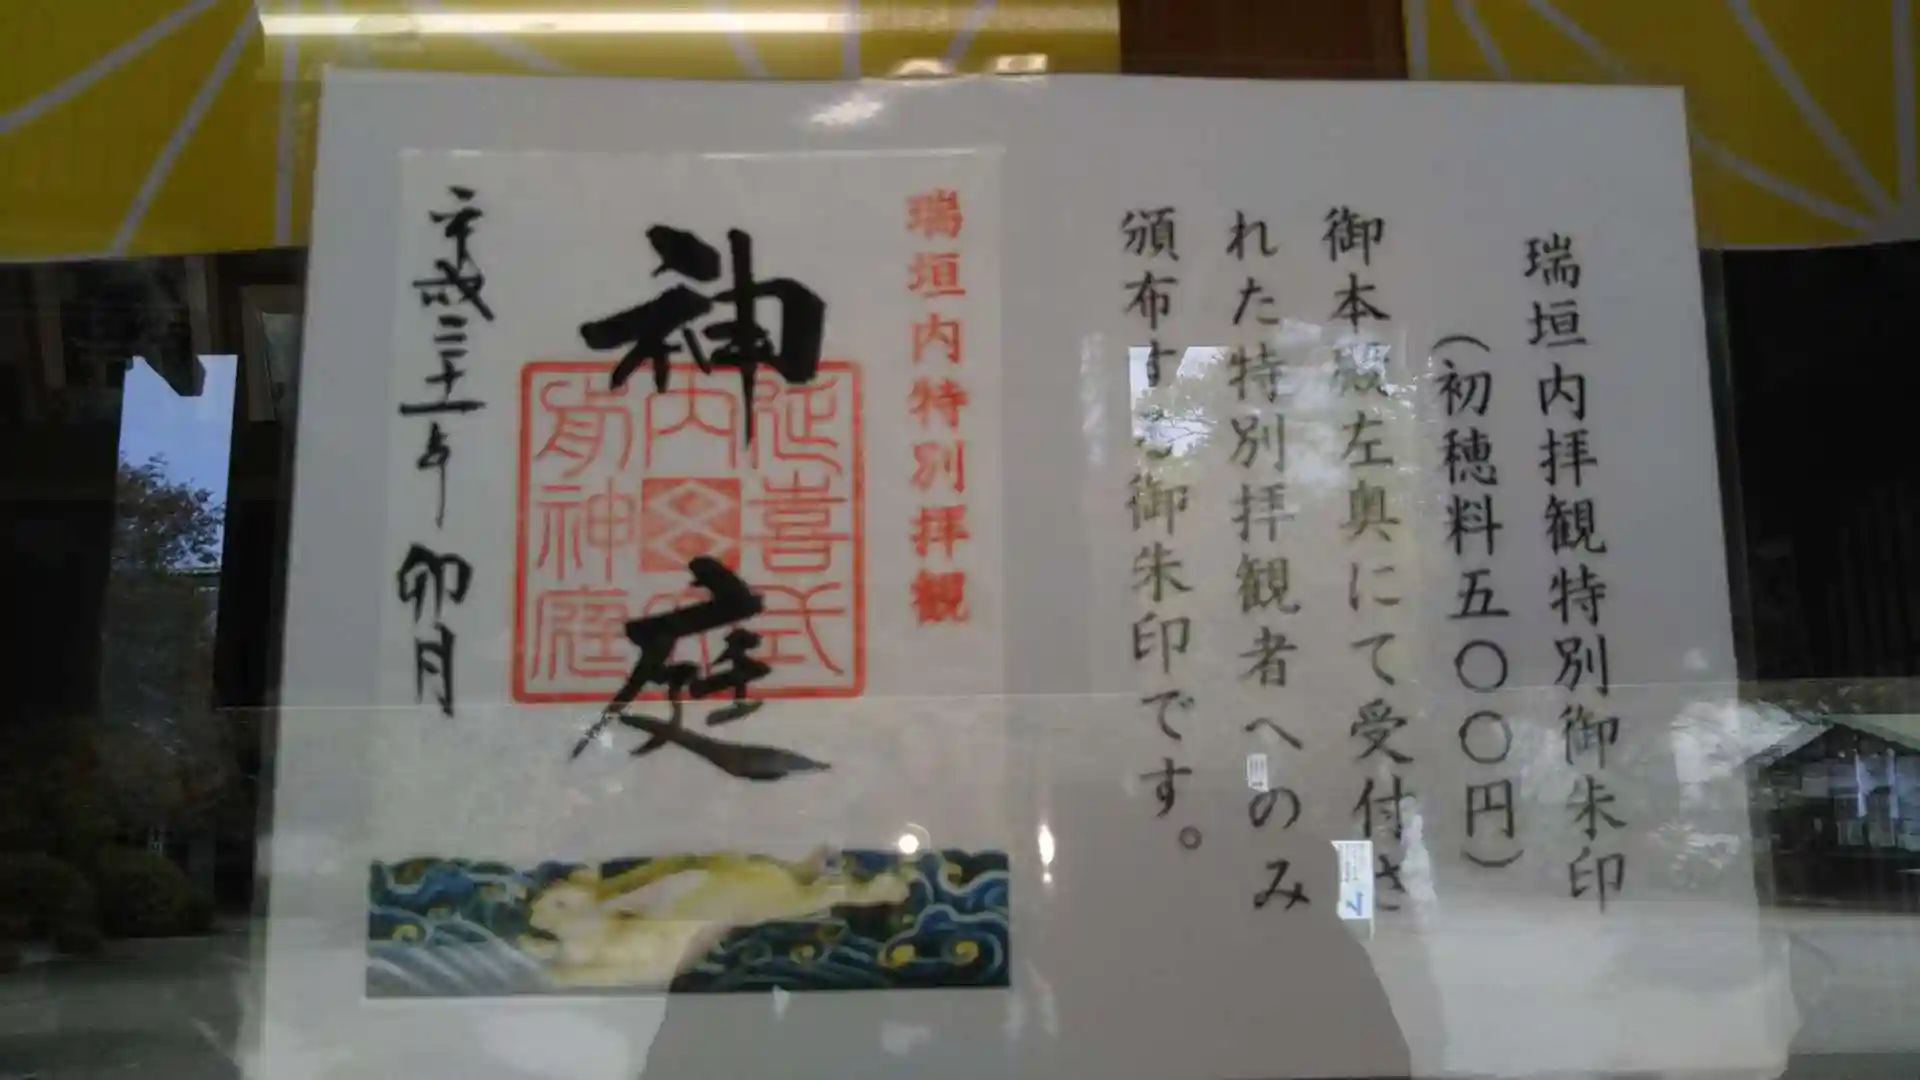 瑞垣内拝観特別御朱印
(初穂料五〇〇円)
御本殿左奥にて受付さ
れた特別拝観者へのみ
頒布する御朱印です。
瑞垣内特別拝観
神庭
延喜式
内
有神庭
平成三十一年 卯月